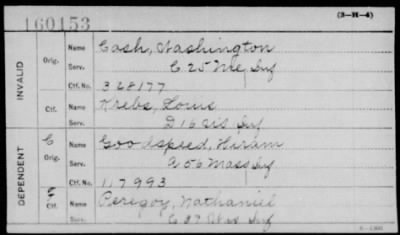 160153
(3-H-4)
INVALID
Orig. Name Cash, Washington
Serv. C 25 Me Inf
Ctf. No. 328177
Ctf. Name Krebs, Louis
Serv. D 16 Inf
DEPENDENT
C Orig. Name Goodspeed, Hiram
Serv. A 56 Mass Inf
Ctf. No. 117993
C Ctf. Name Peregoy, Nathaniel
Serv. C 27 Inf